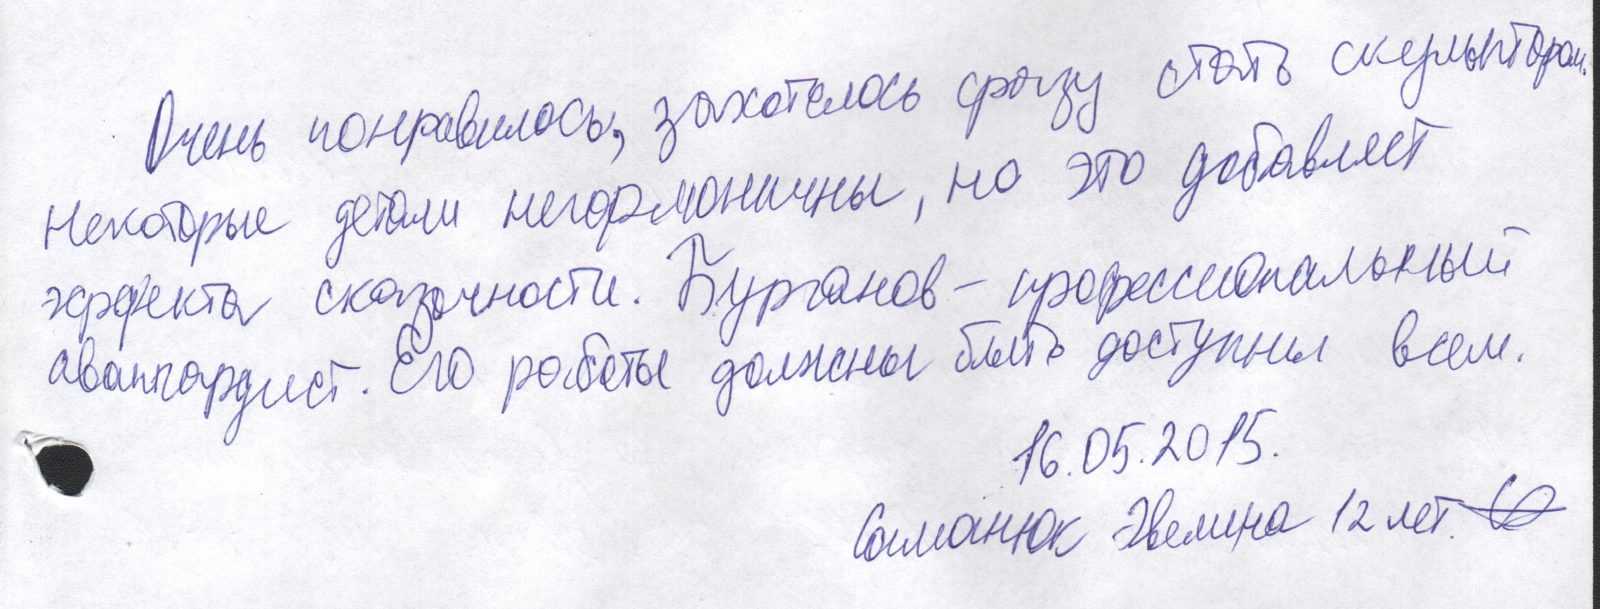 Очень понравилось, захотелось сразу стать скульптором.
Некоторые детали негармоничны, но это добавляет
эффекта сказочности. Бурганов – профессиональный
авангардист. Его работы должны быть доступны всем.
16.05.2015.
Саманюк Эвелина 12 лет.